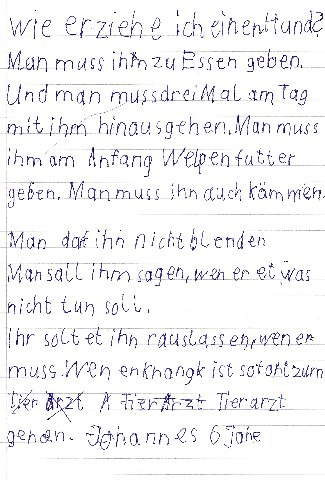 Wie erziehe ich einen Hund?
Man muss ihm zu Essen geben.
Und man muss drei Mal am Tag
mit ihm hinausgehen. Man muss
ihm am Anfang Welpenfutter
geben. Man muss ihn auch kämmen.
Man daf ihn nicht blenden
Man sall ihm sagen, wen er etwas
nicht tun soll.
Ihr soltet ihn rauslassen, wen er
muss. Wen er krangk ist sofort zum
Tierarzt
gehen. Johannes 6 Jahe